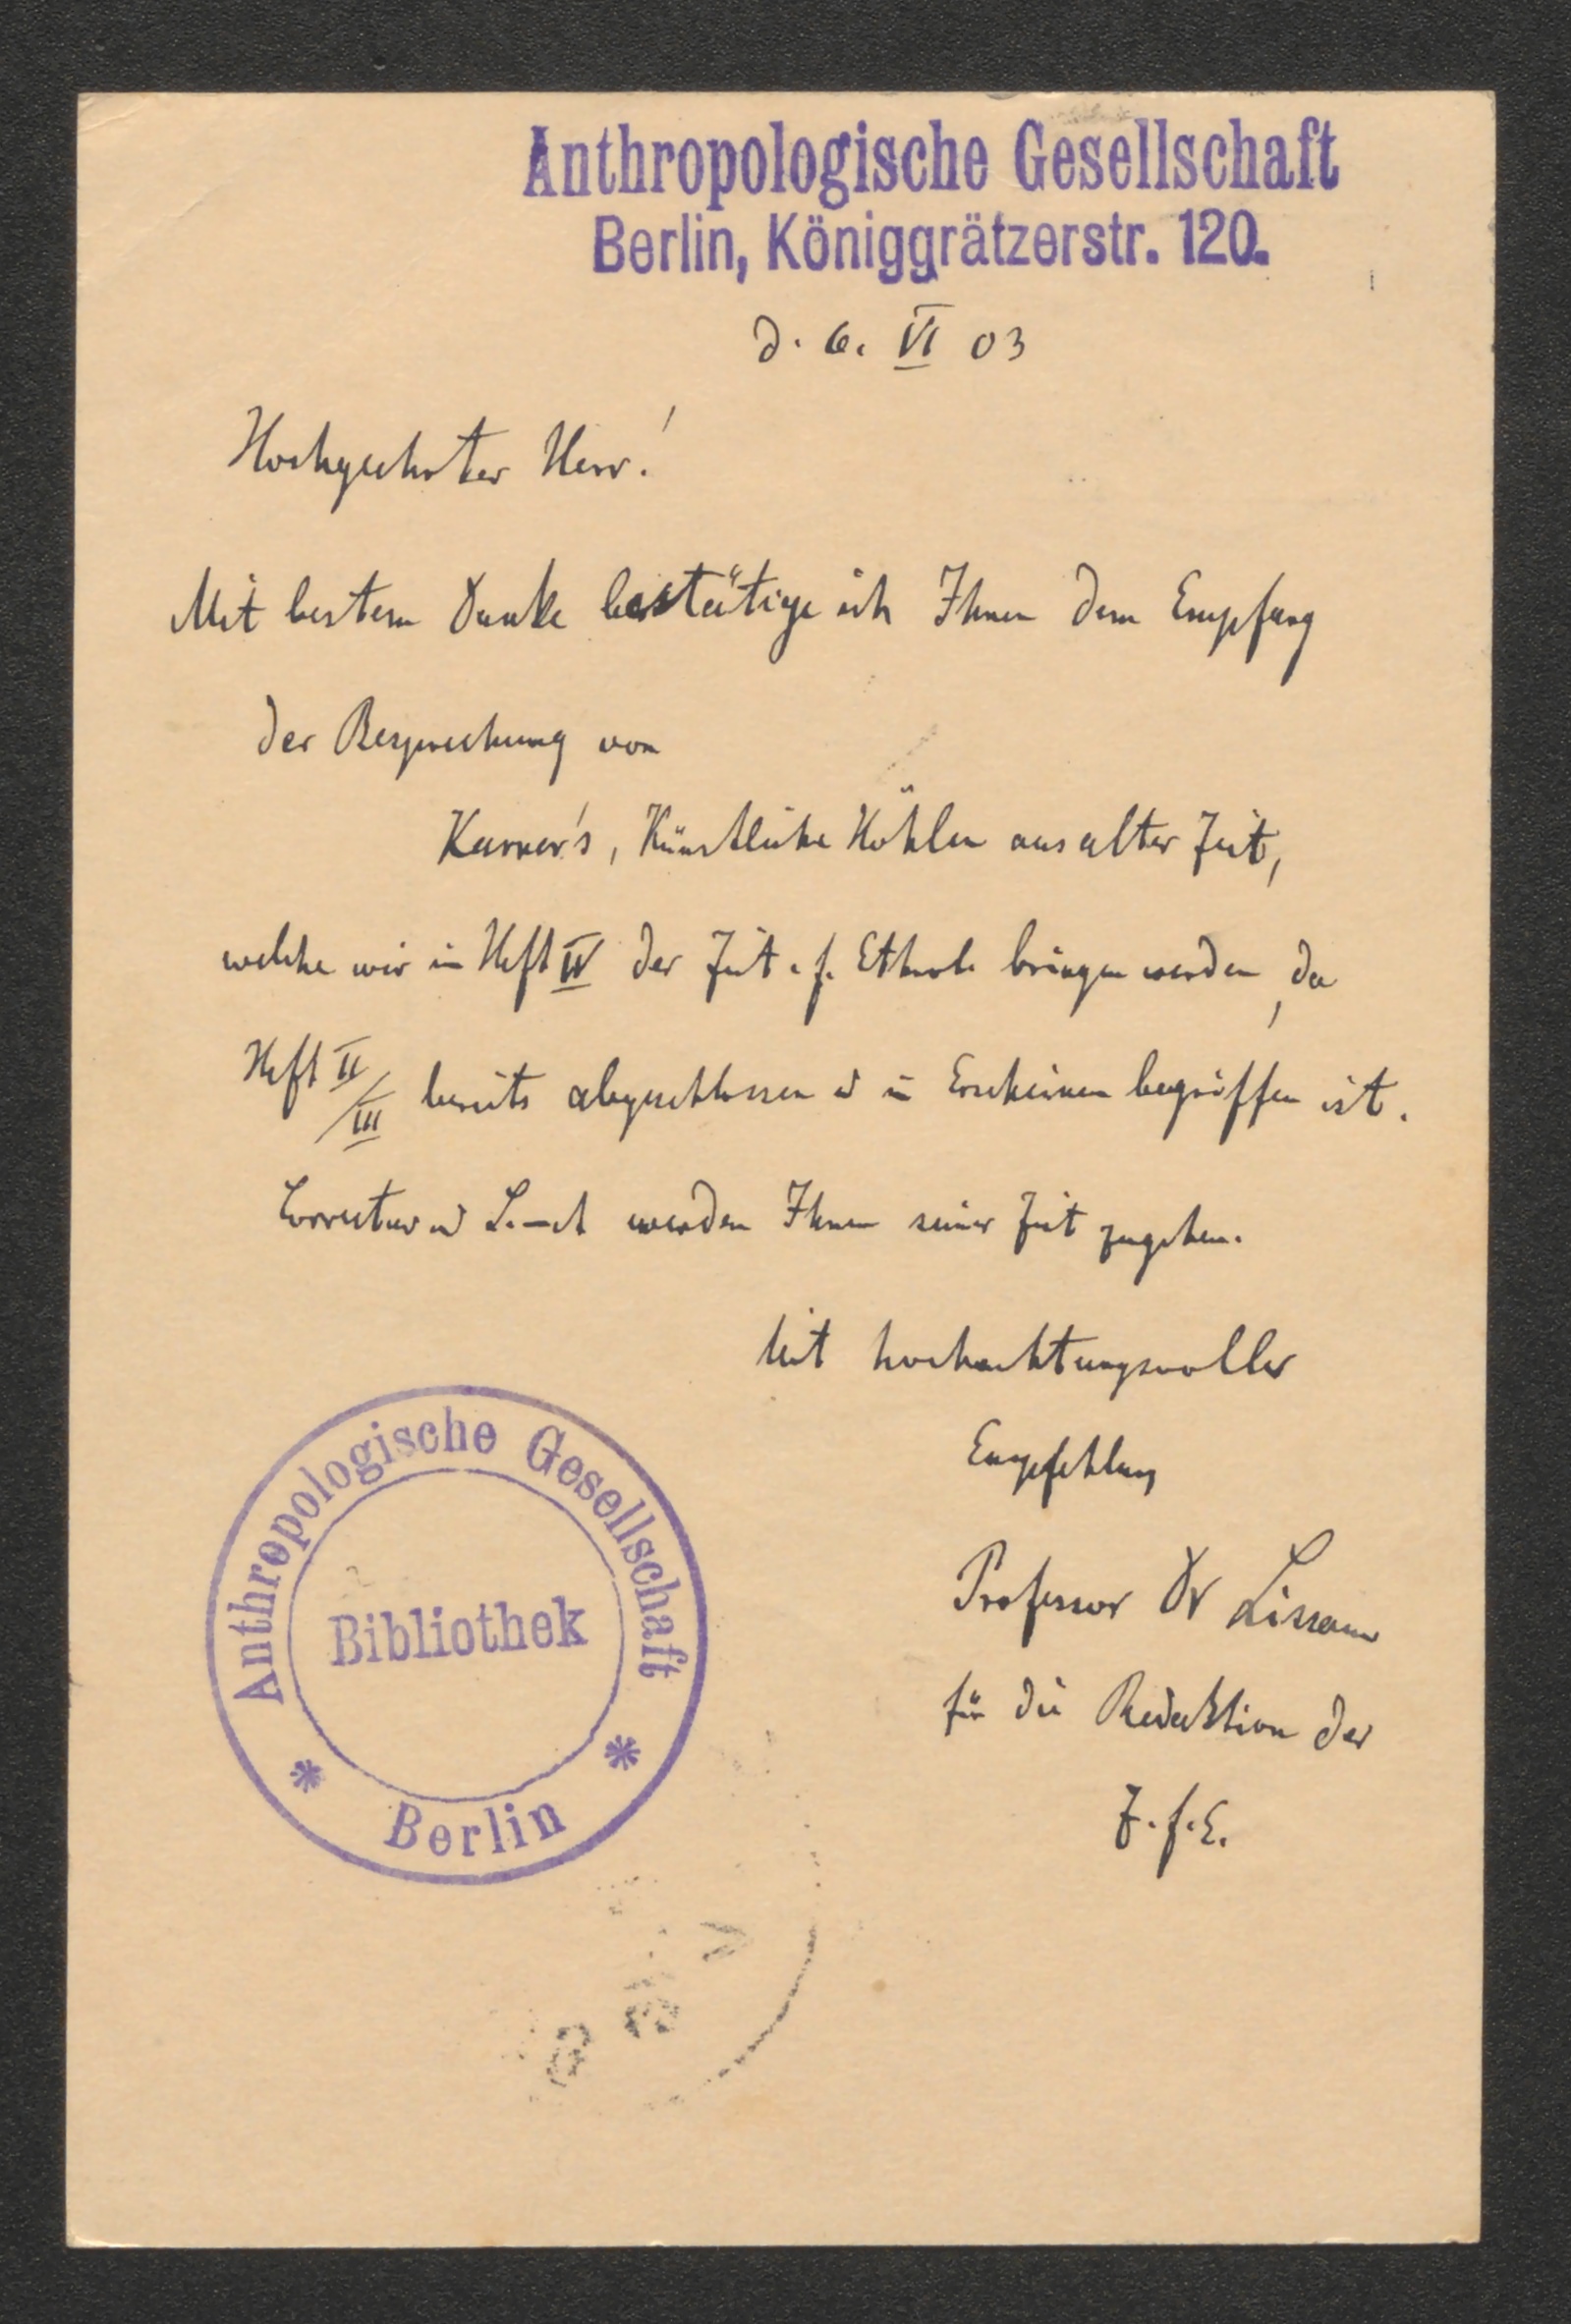 Anthropologische Gesellschaft
Berlin, Königgrätzerstr. 120.
d. 6. VI 03
Hochgeehrter Herr!
Mit bestem Danke bestätige ich Ihnen den Empfang
der Besprechung von
Karner's, Künstliche Höhlen aus alter Zeit,
welche wir in Heft IV der Zeit. f. Ethnol. bringen werden, da
Heft II/III bereits abgeschlossen u in Erscheinen begriffen ist.
Correctur u werden Ihnen seiner Zeit zugehen.
Mit hochachtungsvoller
Empfehlung
Professor Dr Lissauer
für die Redaktion der
Z. f. E.
Anthropologische Gesellschaft
Bibliothek
* Berlin *